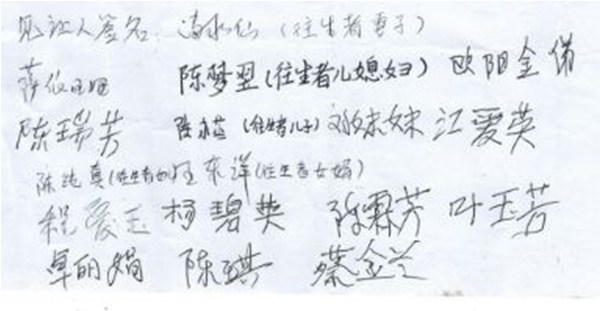 见证人签名: 潘水仙 (往生者妻子)
陈梦翌 (往生者儿媳妇) 欧阳金俤
陈瑞芳 (往生者儿子) 刘妹妹 江爱英
陈纯真 (往生者女) 汪东洋 (往生者女婿)
程爱玉 杨碧英 陈霖芳 叶玉芳
卓丽娟 陈琪 蔡金兰